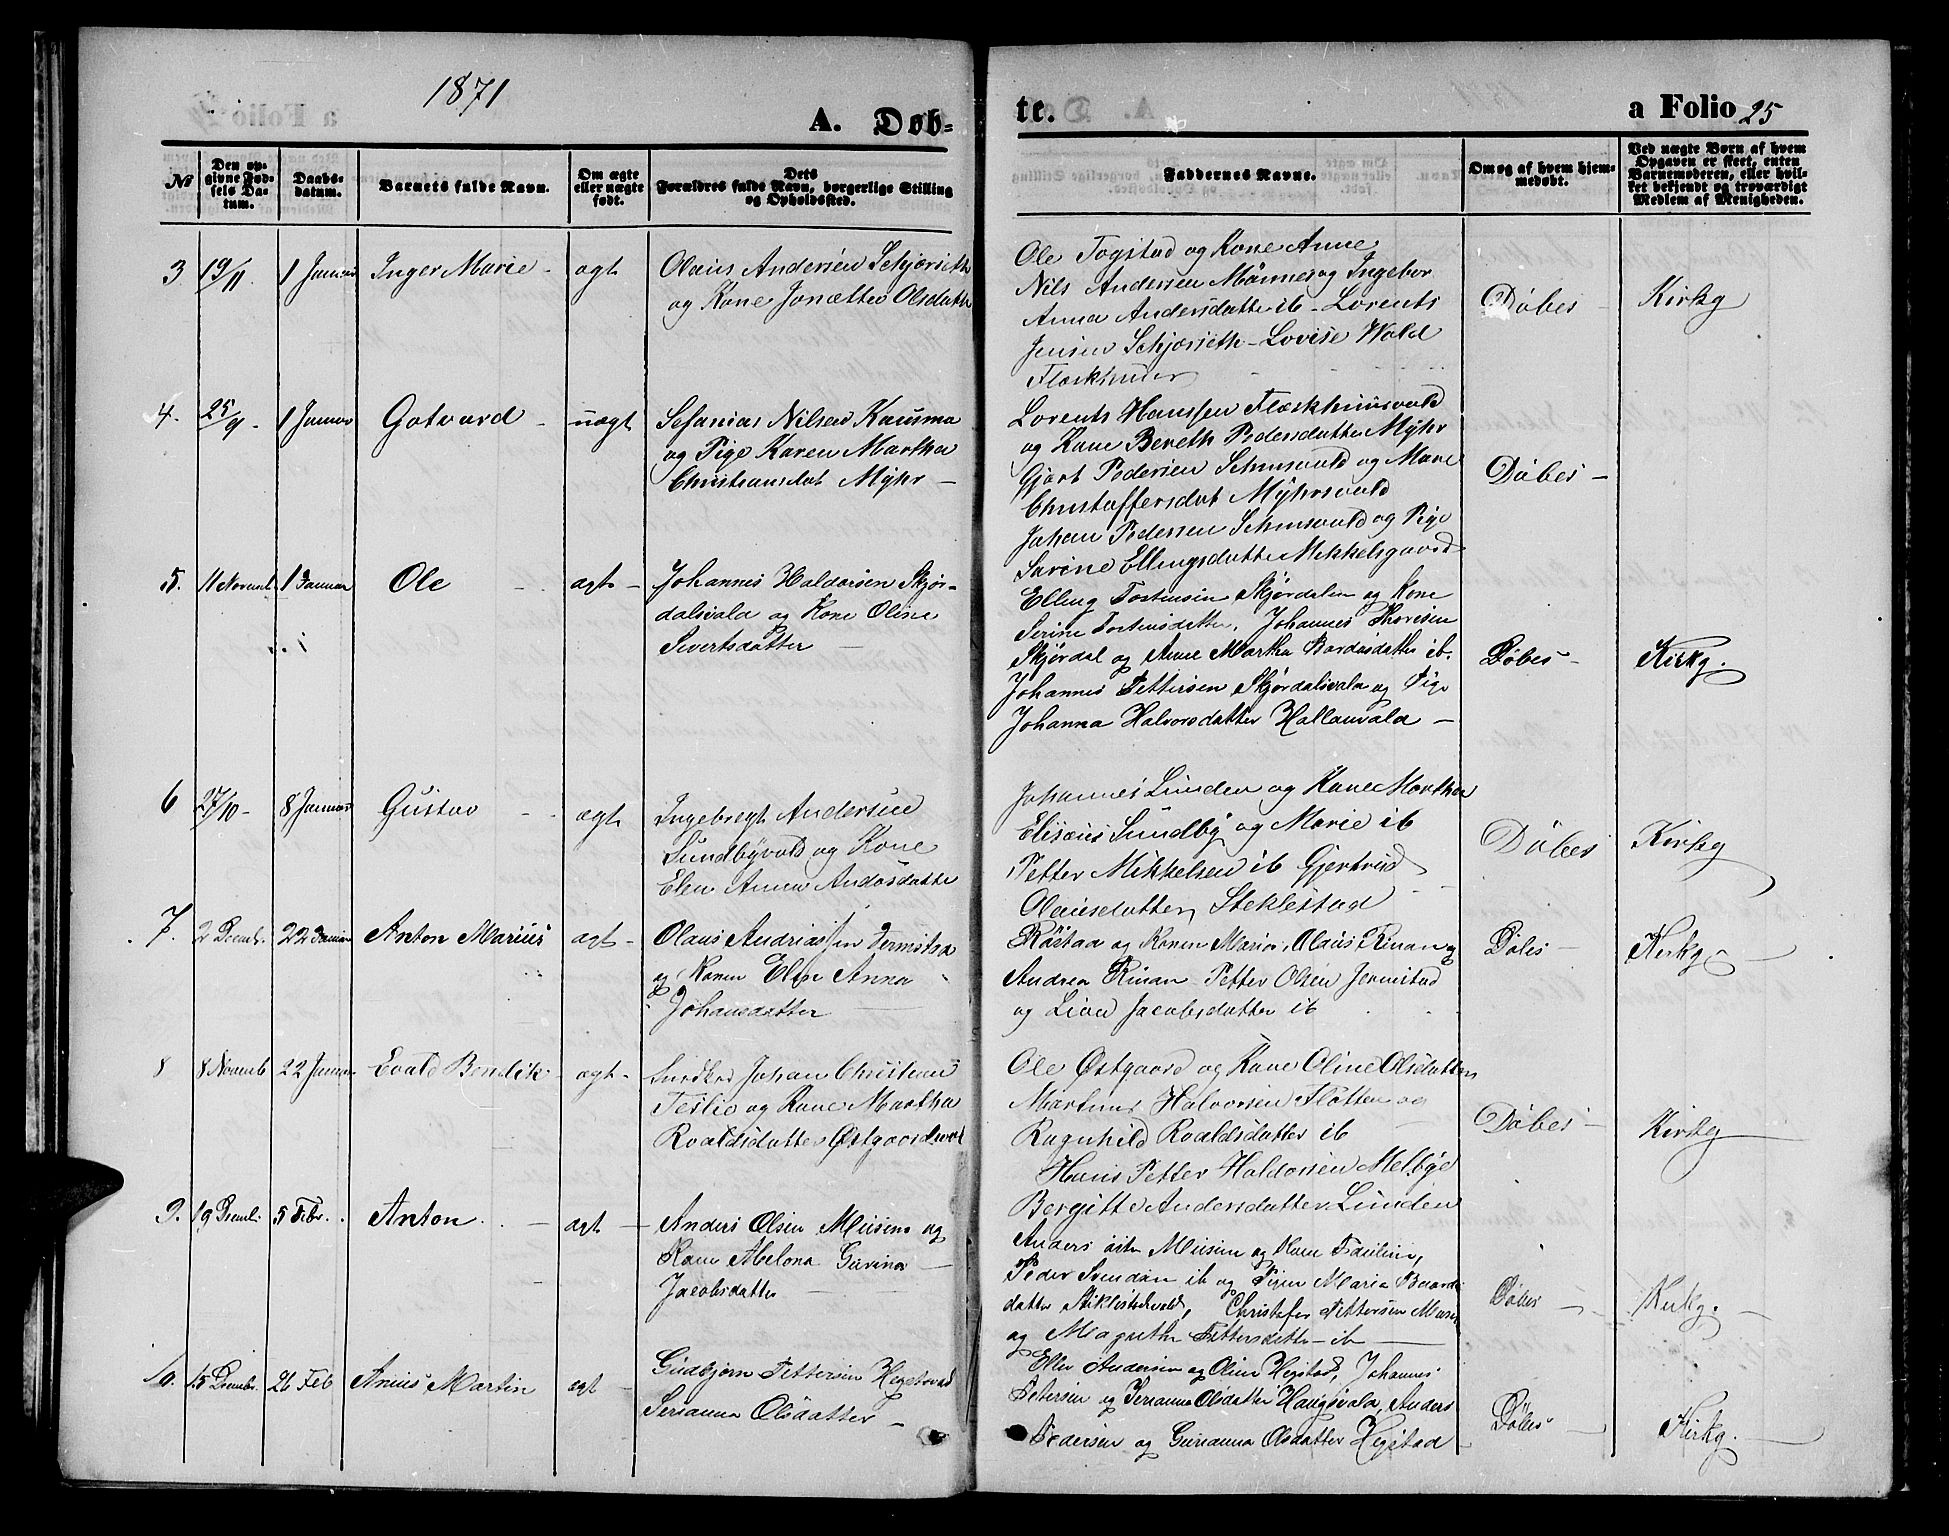 1871
A. Døb-
te.
a Folio 25
№
Den op-
givne Fød-
sels Da-
tum.
Daabs-
datum.
Barnets fulde Navn.
Om ægte
eller uægte
født.
Dets
Forældres fulde Navn, borgerlige Stilling
og Opholdssted.
Faddernes Navne.
Om og af hvem hjem-
medøbt.
Ved uægte Børn af hvem
Opgaven er skeet, enten
Barnemoderen, eller hvil-
ket bekjendt og troværdigt
Medlem af Menigheden.
3 19/11 1 Januar Inger Marie - ægt
Olaus Andersen Schjørseth
og Kone Jonette Olsdatter
Ole Togstad og Kone Anne
Nils Andersen Männes og Ingebor
Anna Andersdatter ib - Lorents
Jensen Schjørseth - Lovise Wold
Døbes - Kirkg
4. 25/9 - 1 Januar Gotvard - uægt
Sefanias Nilsen Kausmo
og Pige Karen Martha
Christiansdat Mÿhr -
Lorents Hanssen
og Kone Bereth Pedersdatter Mÿhr
Gjørt Pedersen og Mare
Christoffersdat Mÿhrsvald
Johan Pedersen og Pige
Sarine Ellingsdatter Mikkelsgaard
Døbes -
5. 11 Novemb 1 Januar Ole - ægt -
Johannes Haldorsen Skjør-
dalsvald og Kone Oline
Sivertsdatter -
Elling Tostensen Skjørdalen og Kone
Serine Tostensdatter, Johannes Thoresen
Skjørdal og Anne Martha Bardosdatter ib.
Johannes Pettersen Skjørdalsvald og Pige
Johanna Halvorsdatter Hallanvald -
Døbes - Kirkg.
6 27/10 - 8 Januar Gustav - ægt
Ingebregt Andersen
Sundbÿvald og Kone
Elen Anna Andosdatter
Johannes Lunden og Kone Martha
Eliseus Sundby og Marie ib
Petter Mikkelsen ib Gjertrud
Olausdatter Stiklestad
Døbes Kirkg
7. 2 Decemb. 22 Januar Anton Marius ægt -
Olaus Andriassen Jermstad
og Konen Elen Anna
Johansdatter -
Røstad og Konen Maria, Olaus Rinan og
Andrea Rinan - Petter Olsen Jermstad
og Jacobsdatter ib
Døbes - Kirkg -
8 8 Novemb 22 Januar Evald Bendik - ægt -
Johan Christian
Teslie og Kone Martha
Roaldsdatter Østgaardsvald
Ole Østgaard og Kone Oline Olsdatter
Martinus Halvorsen Flotten og
Ragnhild Roaldsdatter ib
Hans Petter Haldorsen Melbÿe
Bergitte Andersdatter Lunden
Døbes - Kirkg
9. 19 Decemb. 5 Febr. Anton - ægt -
Anders Olsen Musum og
Kone Abelona Gurina -
Jacobsdatter -
Anders Musum og Kone Paulina,
Peder Svendsen ib og Pigen Maria Baards-
datter Stiklestadvald, Christofer Pettersen
og Magrethe Pettersdatter - ib -
Døbes - Kirkg.
10. 15 Decembr. 26 Feb Anius Martin ægt -
Gudbjørn Pettersen Hegstad
Serianna Olsdatter -
Eller Andersen og Oline Hegstad, Johannes
Petersen og Serianna Olsdatter Haugsvald, Anders
Pedersen og Gurianna Olsdatter Hegstad
Døbes - Kirkg. -